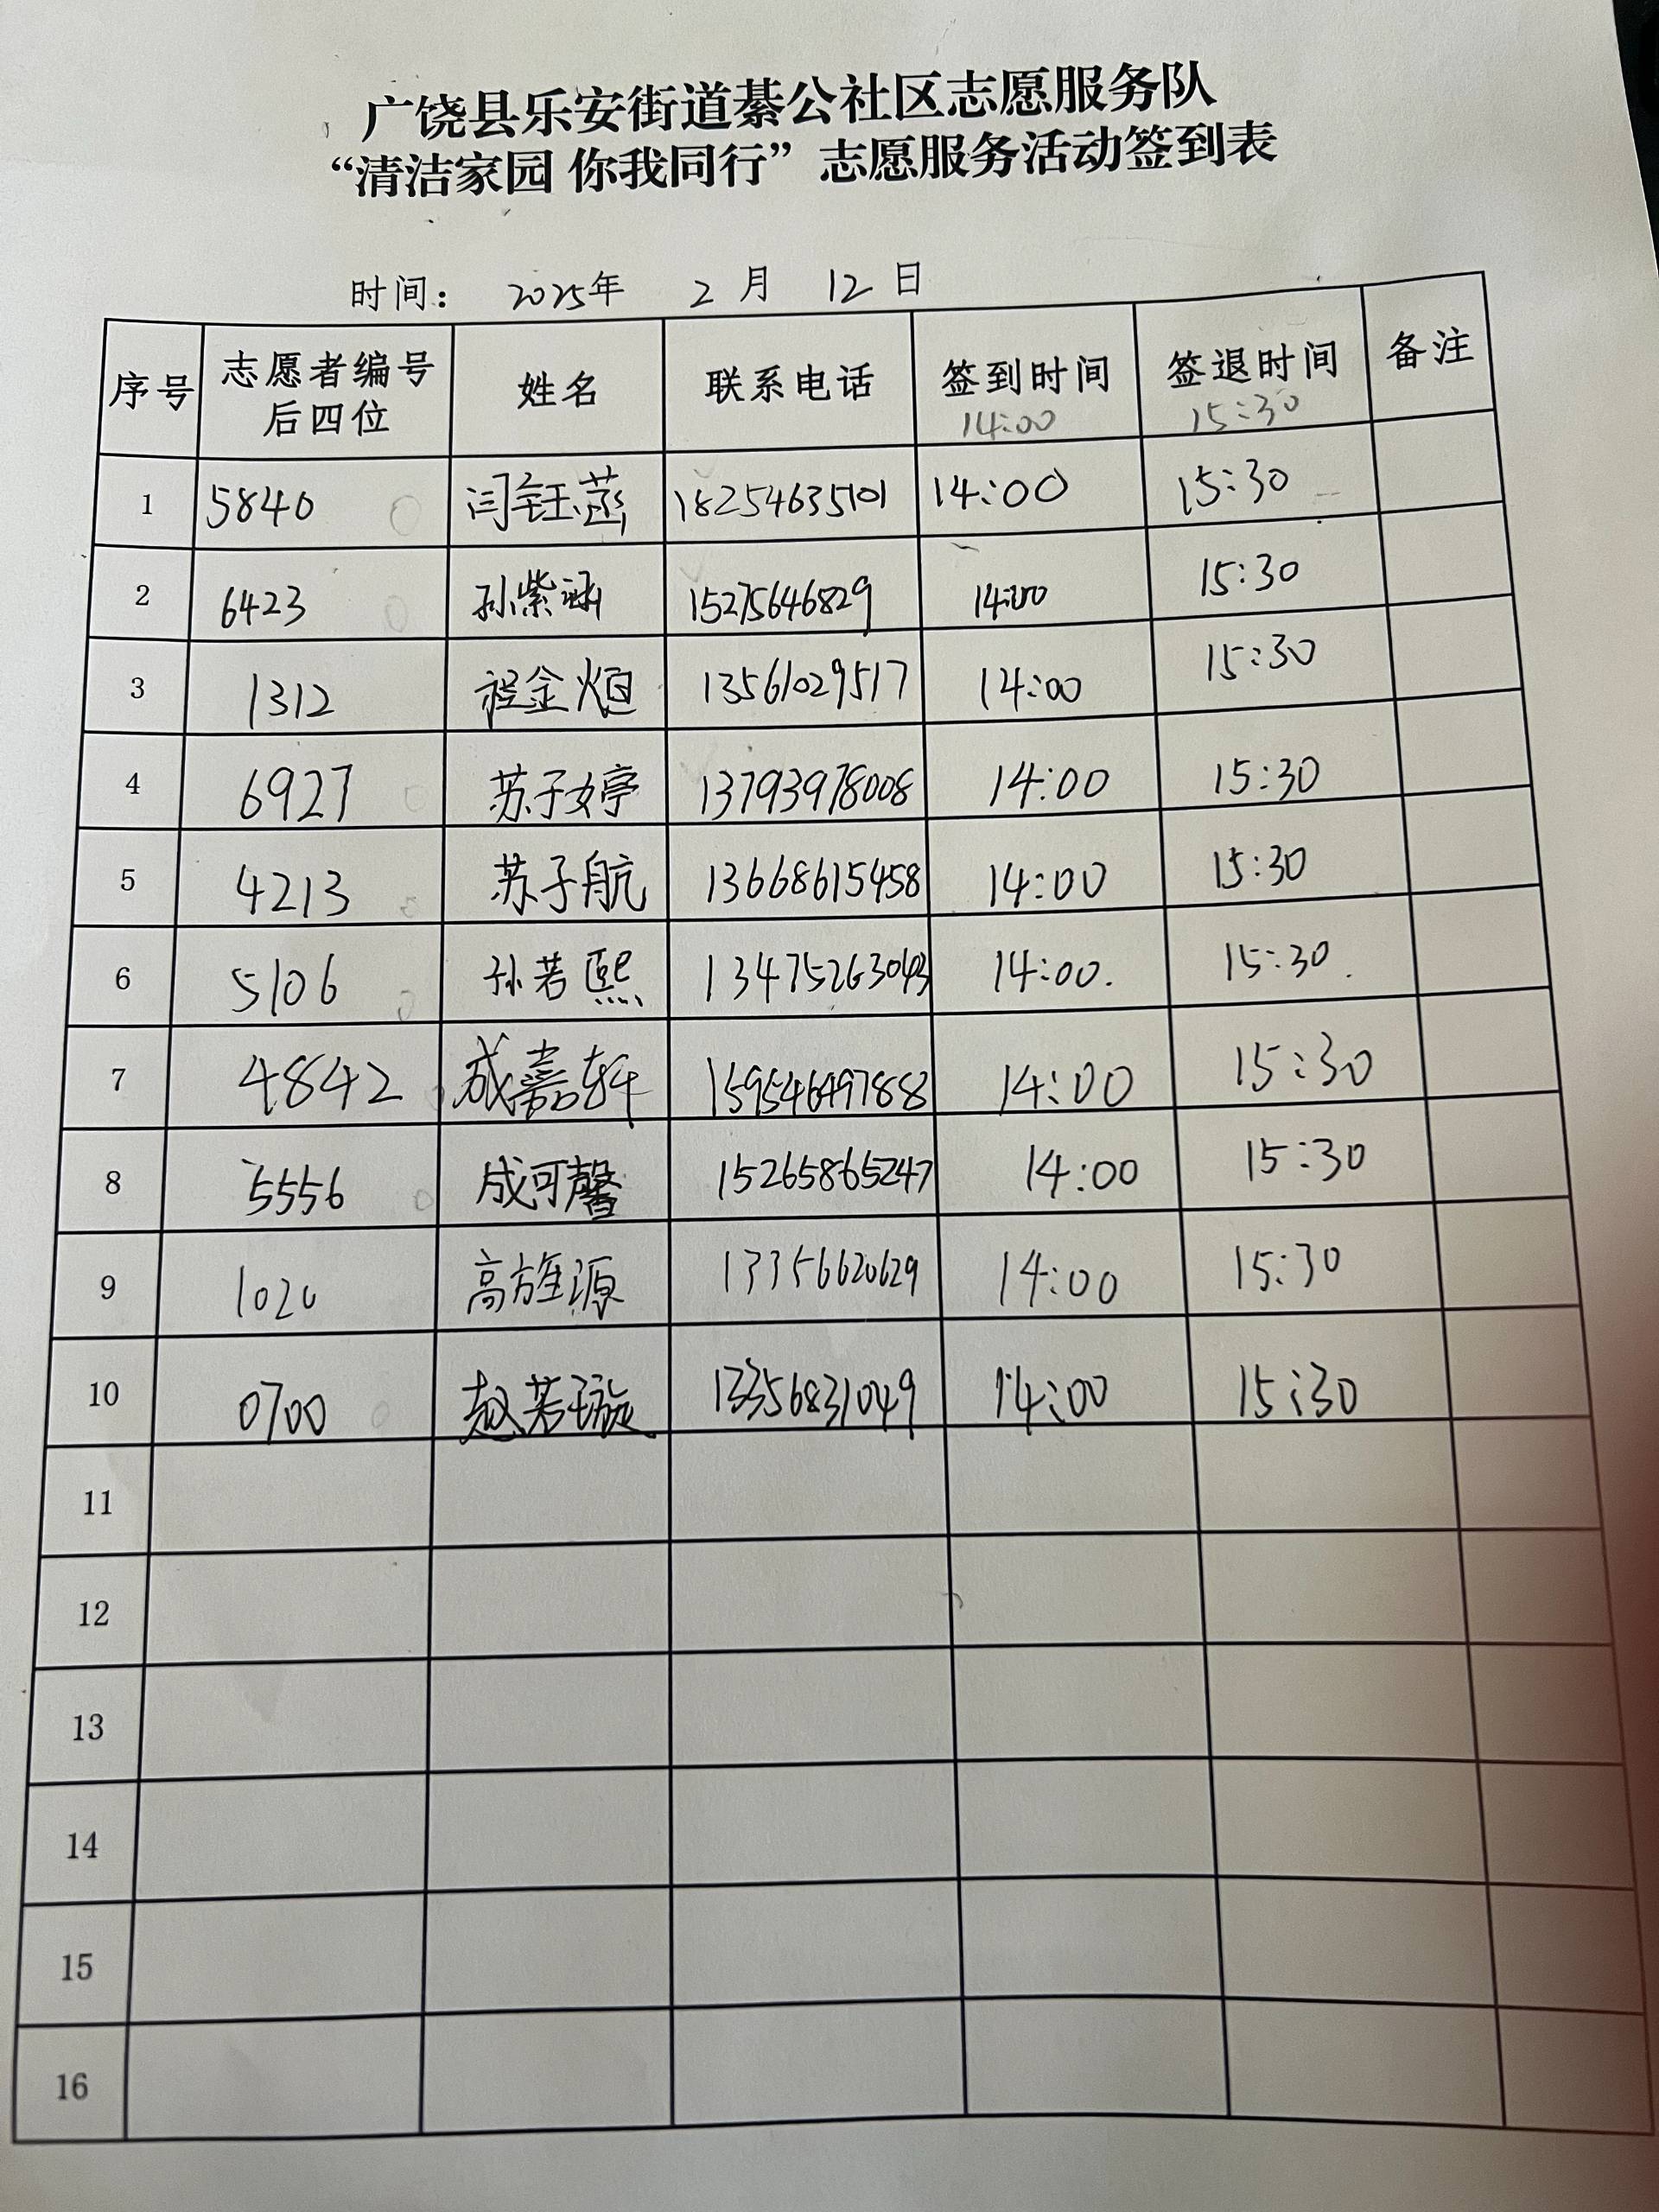 广饶县乐安街道綦公社区志愿服务队
“清洁家园 你我同行”志愿服务活动签到表
时间： 2025年 2 月 12 日
序号 志愿者编号后四位 姓名 联系电话 签到时间 14:00 签退时间 15:30 备注
1 5840 闫钰 18254635101 14:00 15:30
2 6423 孙紫涵 15275646829 14:00 15:30
3 1312 程金烜 13561029517 14:00 15:30
4 6927 苏子婷 13793978008 14:00 15:30
5 4213 苏子航 13668615458 14:00 15:30
6 5106 孙若熙 13475263043 14:00. 15:30.
7 4842 成嘉轩 15954649788 14:00 15:30
8 5556 成可馨 15265865247 14:00 15:30
9 1020 高旌源 13356620629 14:00 15:30
10 0700 赵若璇 13356831049 14:00 15:30
11
12
13
14
15
16